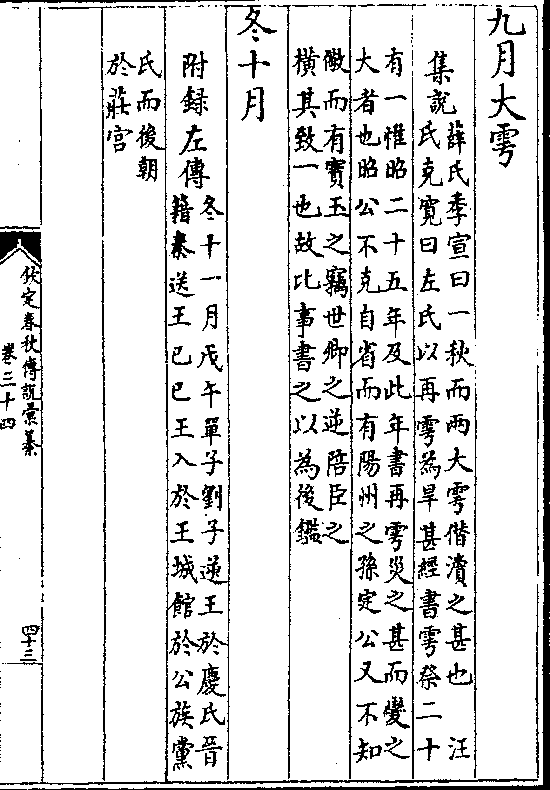 九月大雩
集説薛氏季宣曰一秋而兩大雩僭瀆之甚也　汪
氏克寛曰左氏以再雩為旱甚經書雩祭二十
有一惟昭二十五年及此年書再雩災之甚而變之
大者也昭公不克自省而有陽州之孫定公又不知
儆而有寳玉之竊世卿之逆陪臣之
橫其致一也故比事書之以為後鑑
冬十月
附錄左傳冬十一月戊午單子劉子逆王於慶氏晉
籍秦送王己巳王入於王城館於公族黨
氏而後朝
於莊宫
欽定春秋傳說彙纂
卷三十四
四十三